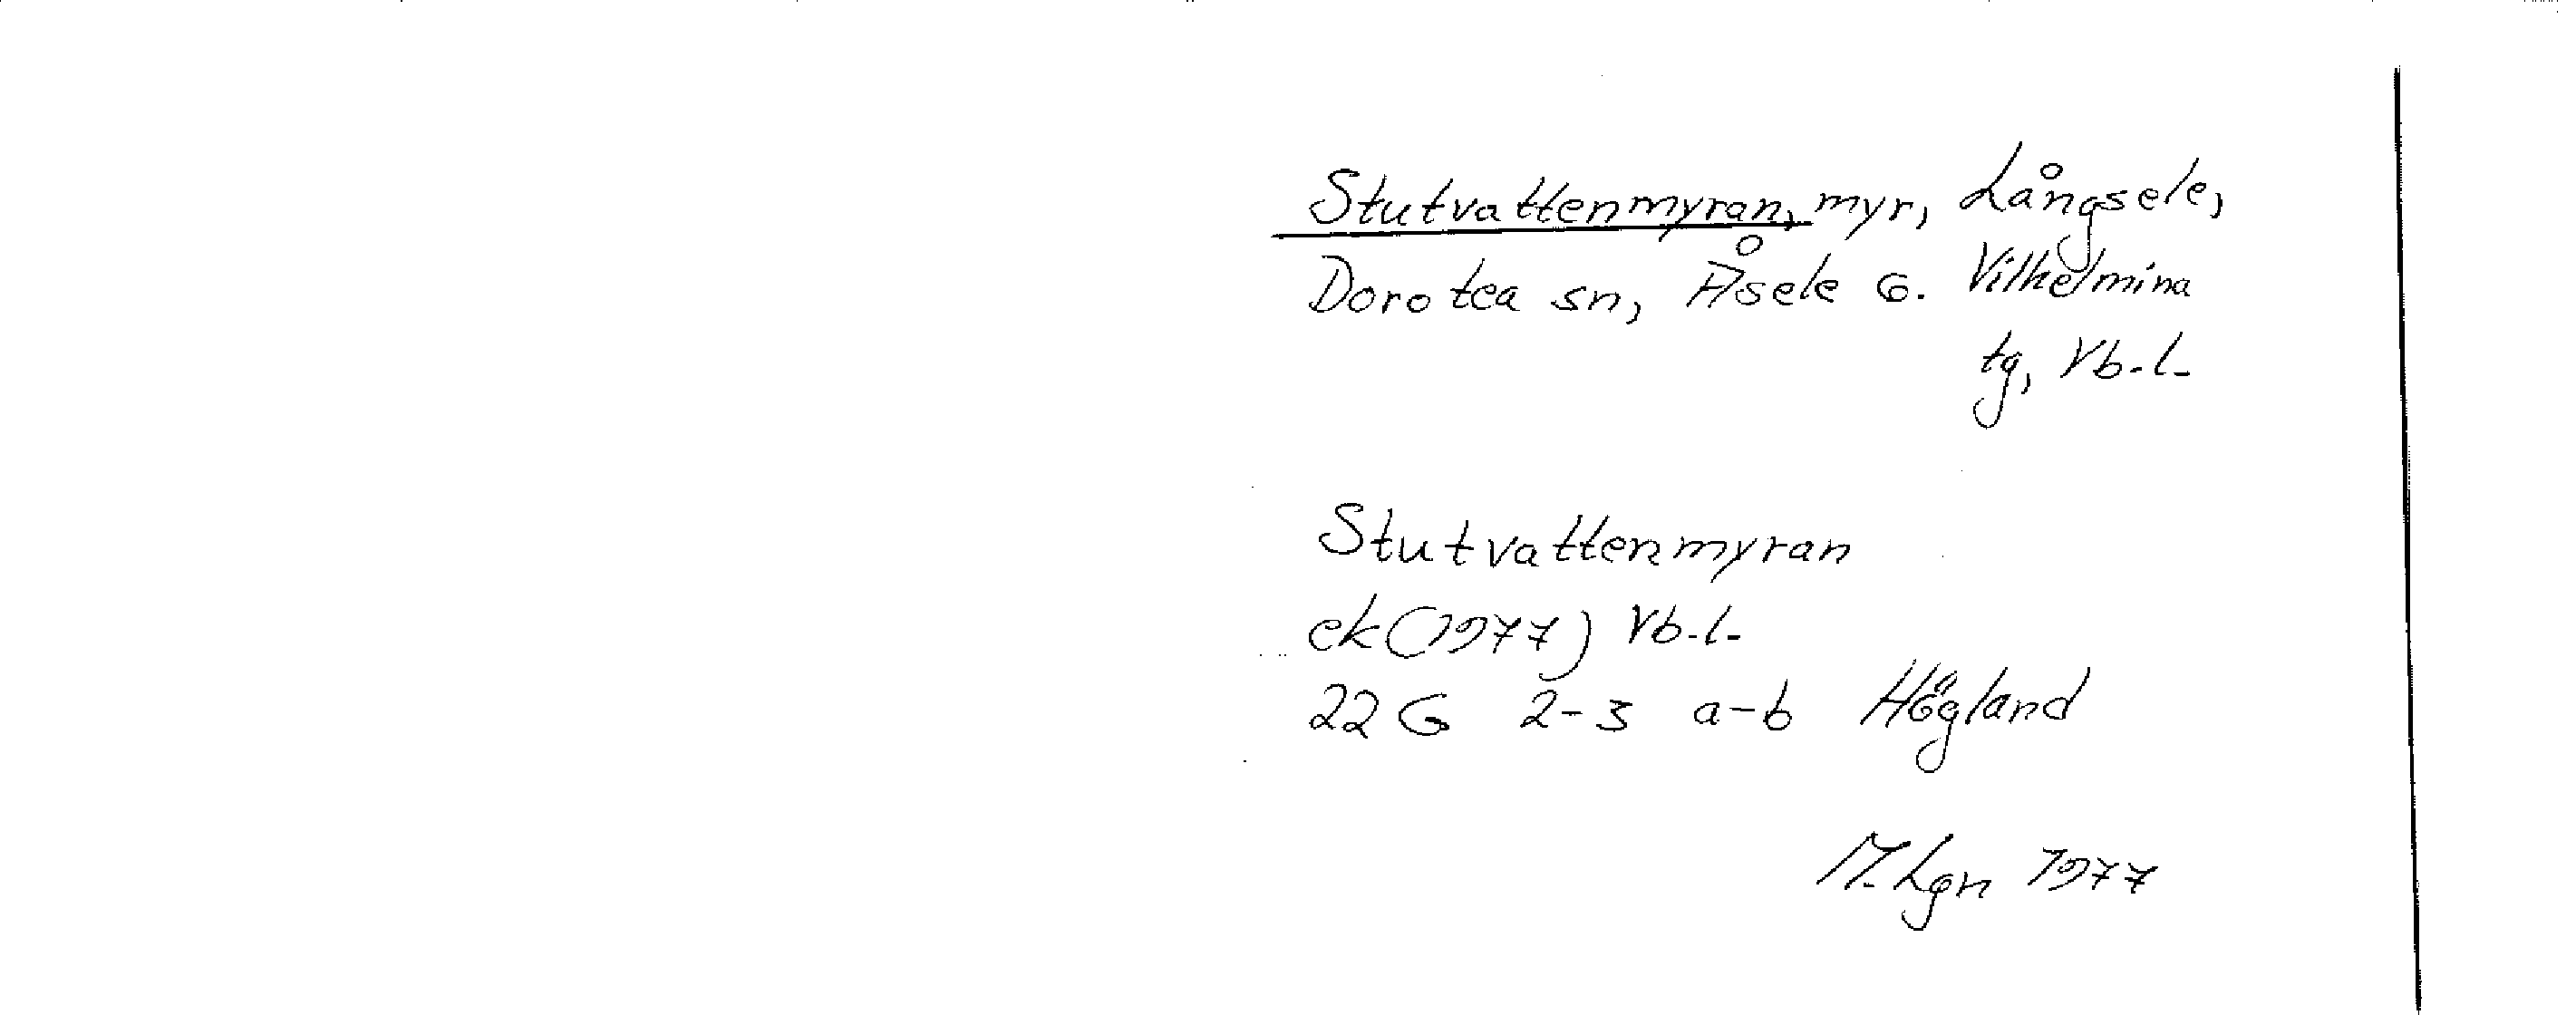 Stutvattenmyran, myr, Långsele,
Dorotea sn, Åsele G. Vilhelmina
tg, Vb.l.
Stutvattenmyran
ek (1977) Vb.l.
22 G 2-3 a-b Högland
M. Lgn 1977